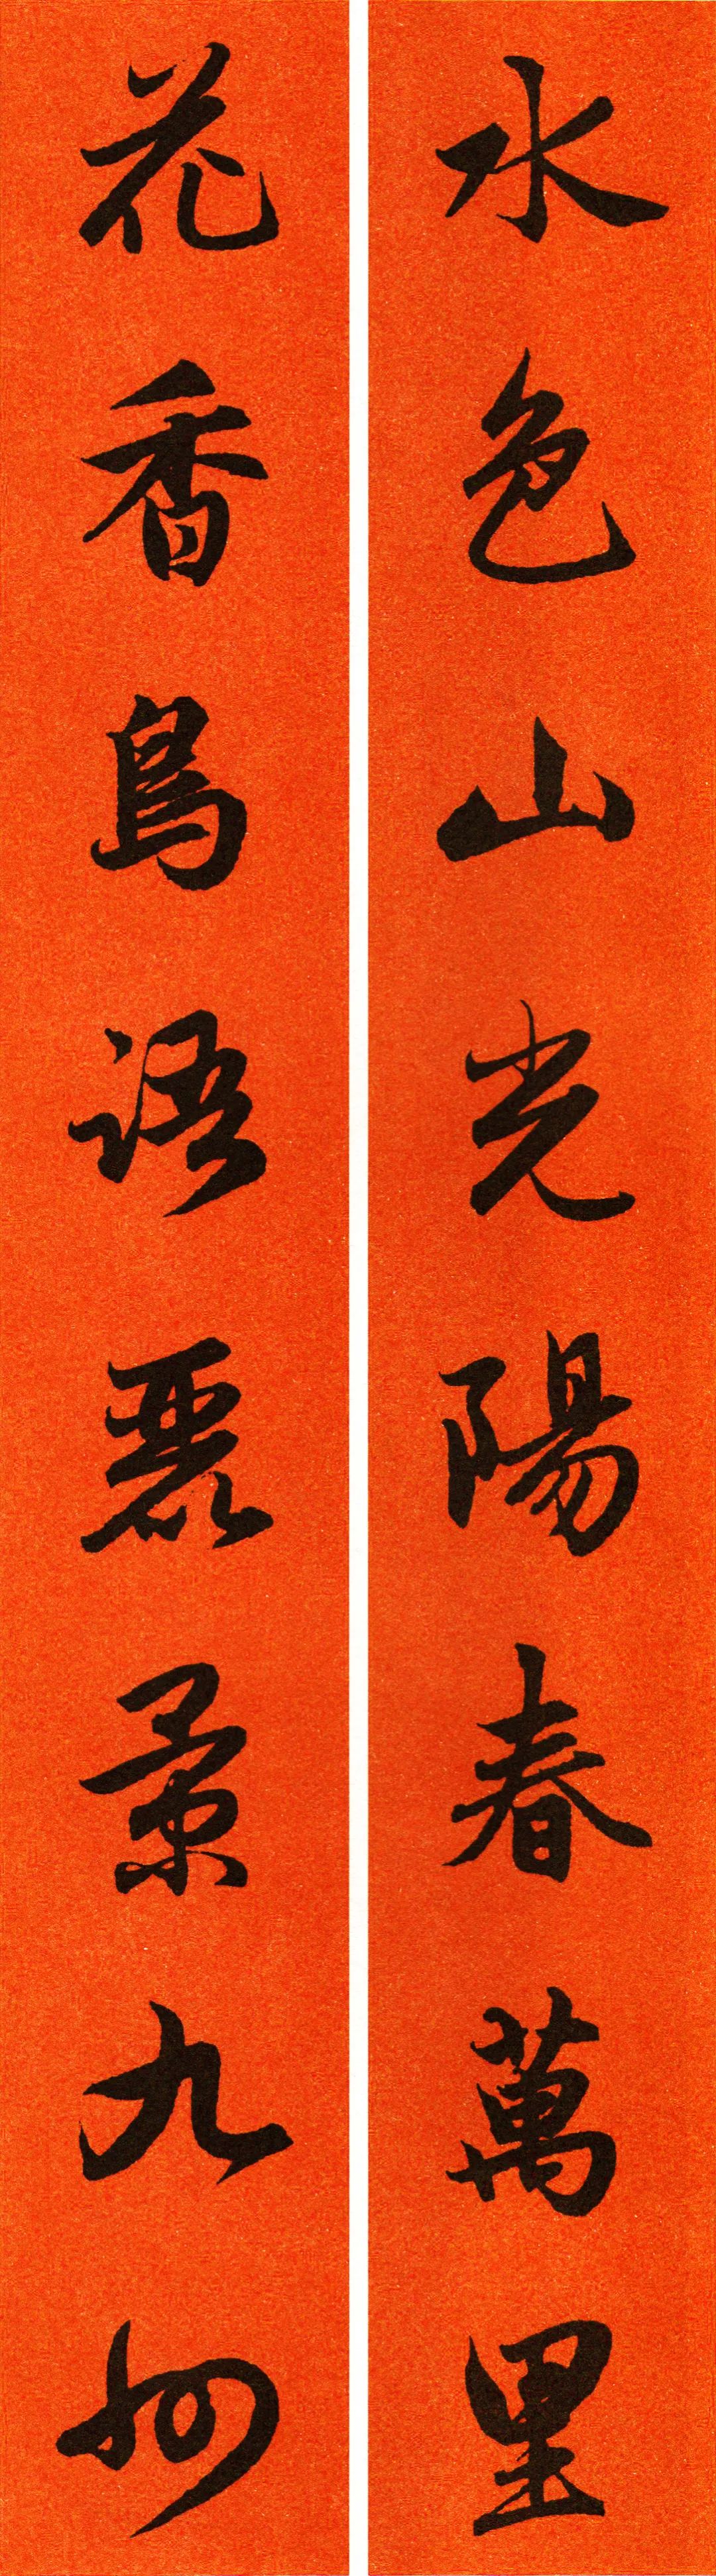 水色山光陽春萬里
花香鳥語麗景九州